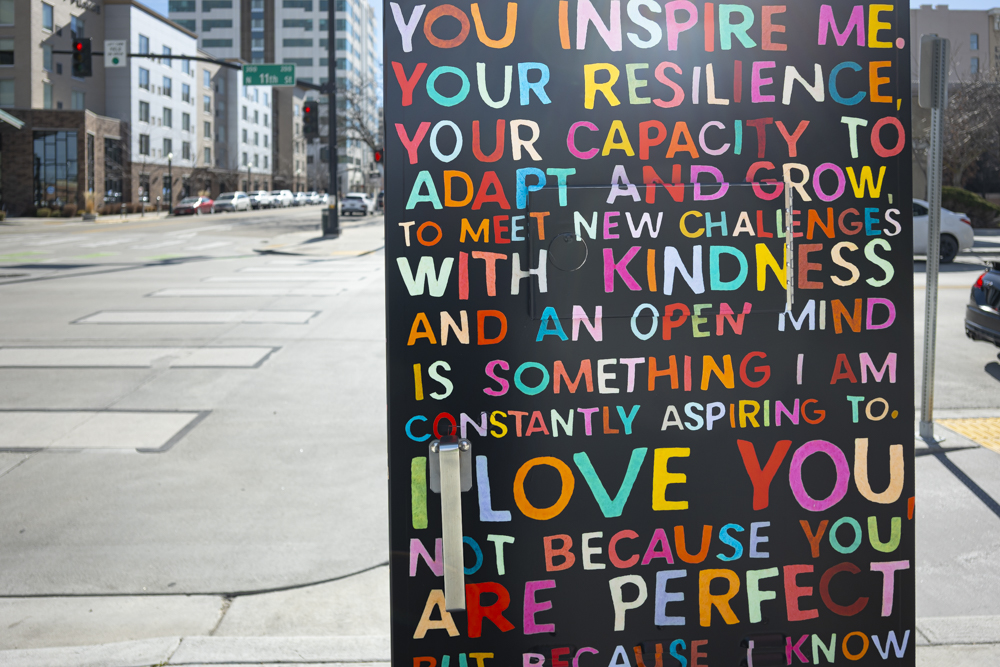 11th ST
YOU INSPIRE ME.
YOUR RESILIENCE,
YOUR CAPACITY TO
ADAPT AND GROW,
TO MEET NEW CHALLENGES
WITH KINDNESS
AND AN OPEN MIND
IS SOMETHING I AM
CONSTANTLY ASPIRING TO.
I LOVE YOU,
NOT BECAUSE YOU
ARE PERFECT
BUT BECAUSE I KNOW